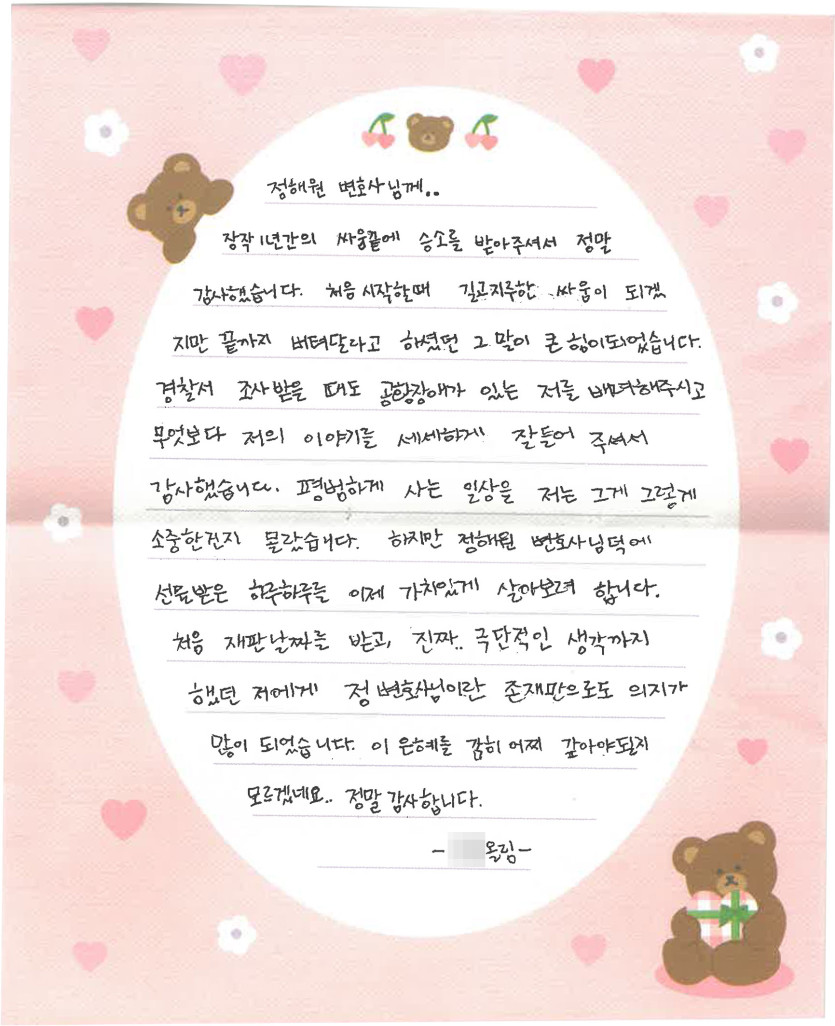 정해원 변호사님께..
장작 1년간의 싸움끝에 승소를 받아주셔서 정말
감사했습니다. 처음 시작할때 길고지루한 싸움이 되겠
지만 끝까지 버텨달라고 하셨던 그 말이 큰 힘이되었습니다.
경찰서 조사 받을 때도 공황장애가 있는 저를 배려해주시고
무엇보다 저의 이야기를 세세하게 잘들어 주셔서
감사했습니다. 평범하게 사는 일상을 저는 그게 그렇게
소중한건지 몰랐습니다. 하지만 정해원 변호사님덕에
선물받은 하루하루를 이제 가치있게 살아보려 합니다.
처음 재판날짜를 받고, 진짜.. 극단적인 생각까지
했던 저에게 정변호사님이란 존재만으로도 의지가
많이 되었습니다. 이 은혜를 감히 어찌 갚아야될지
모르겠네요.. 정말 감사합니다.
- 올림 -